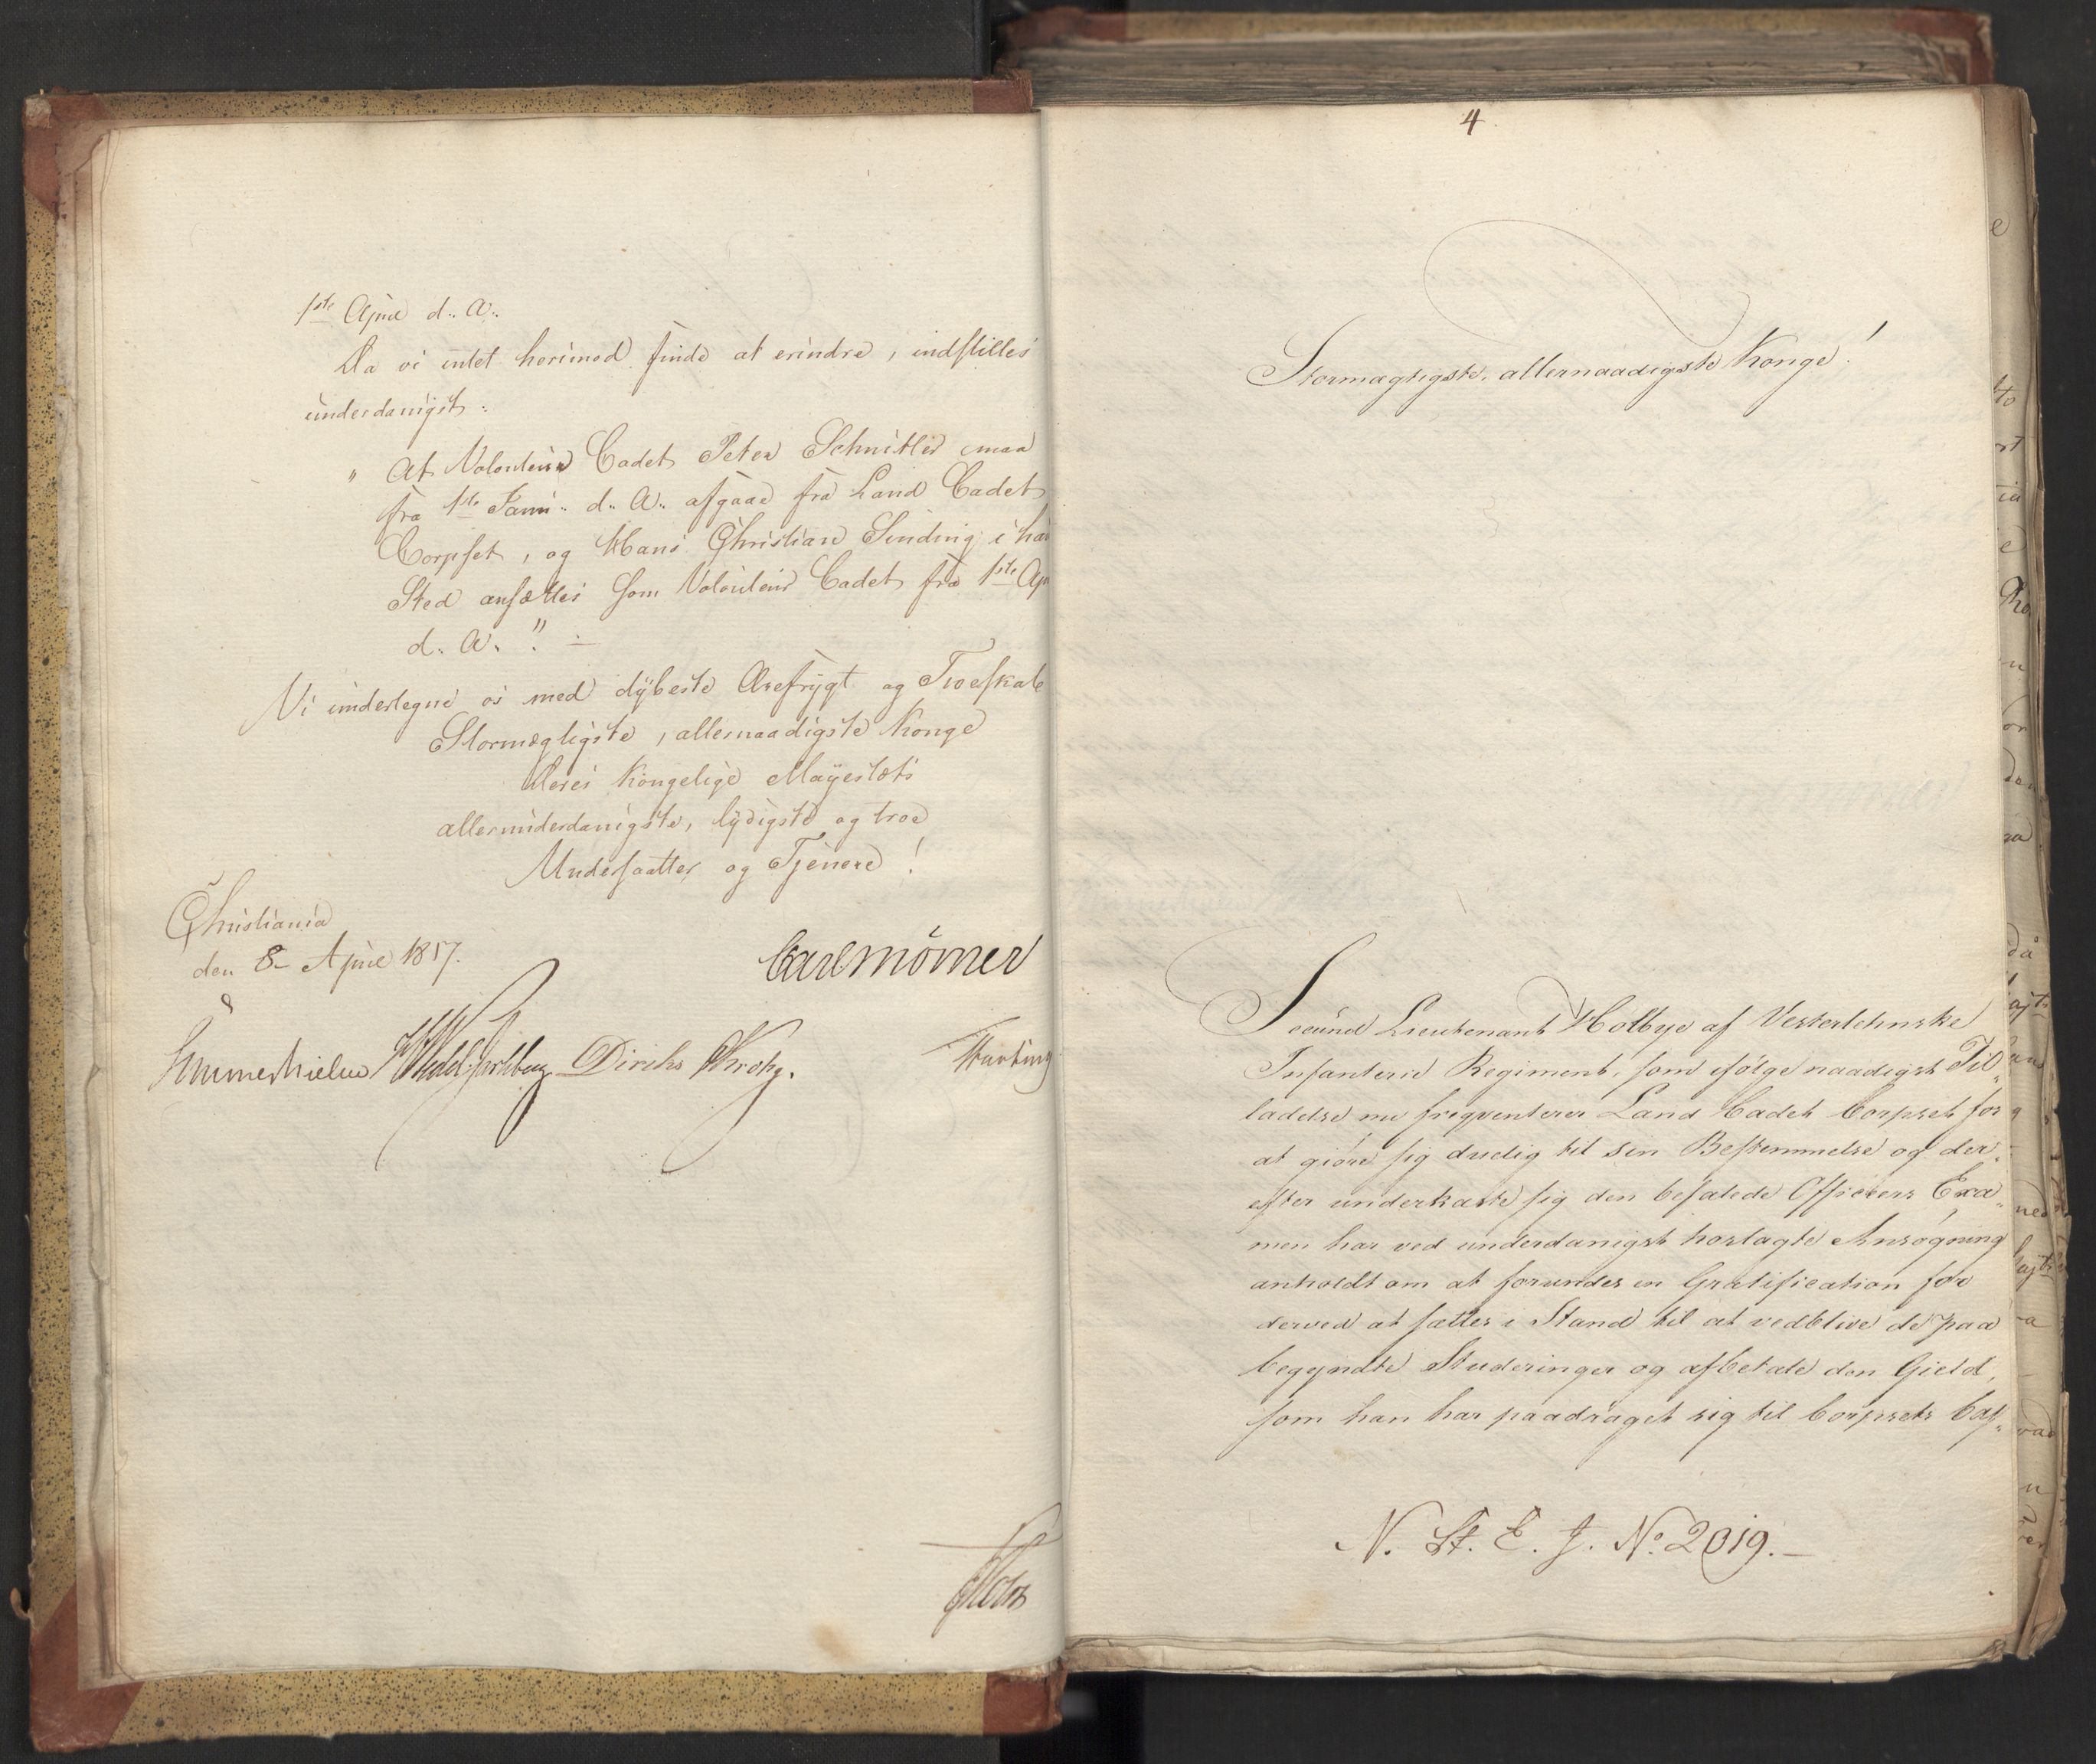 1ste April d. A.
Da vi intet herimod finde at erindre, indstilles
underdanigst:
" At Volonteur Cadet Peter Schnitler maa
fra 1ste Janu. d. A. afgaae fra Land Cadet
Corpset, og Hans Christian Sinding i hans
Sted ansættes som Volonteur Cadet fra 1ste Apr
d. A. "
Vi undertegne os med dybeste Ærefrygt og Troeskab
Stormægtigste, allernaadigste Konge
Deres Kongelige Mayestæts
allerunderdanigste, lydigste og troe
Undersaatter og Tjenere!
Christiania
den 8 April 1817.
Carl Mörner
Sommerhielm Wedel Jarlsberg Diriks Krohg.
Hartung
Holst
4.
Stormægtigste, allernaadigste Konge!
Secund Lieutenant Holbye af Vesterlehnske
Infanterie Regiment, som ifølge naadigst Til„
ladelse nu frequenterer Land Cadet Corpset for
at giøre sig duelig til sin Bestemmelse og der„
efter underkaste sig den befalede Officeers Exa„
men har ved underdanigst hoslagte Ansøgning
anholdt om at forundes en Gratification for
derved at sættes i Stand til at vedblive de paa
begyndte Studeringer og afbetale den Gield,
som han har paadraget sig til Corpsets Cas„
N. St. E. J. No. 2019.